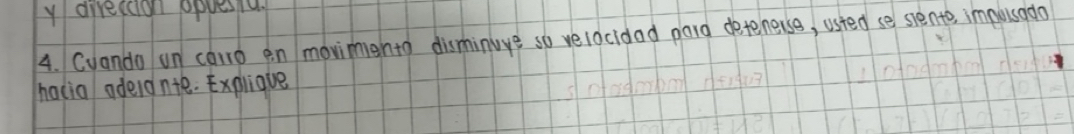 y dirección opuesta.
4. Cuando un carro en movimiento disminuye su velocidad para detenerse, usted se siente, impulsado
hacia adelante. Explique